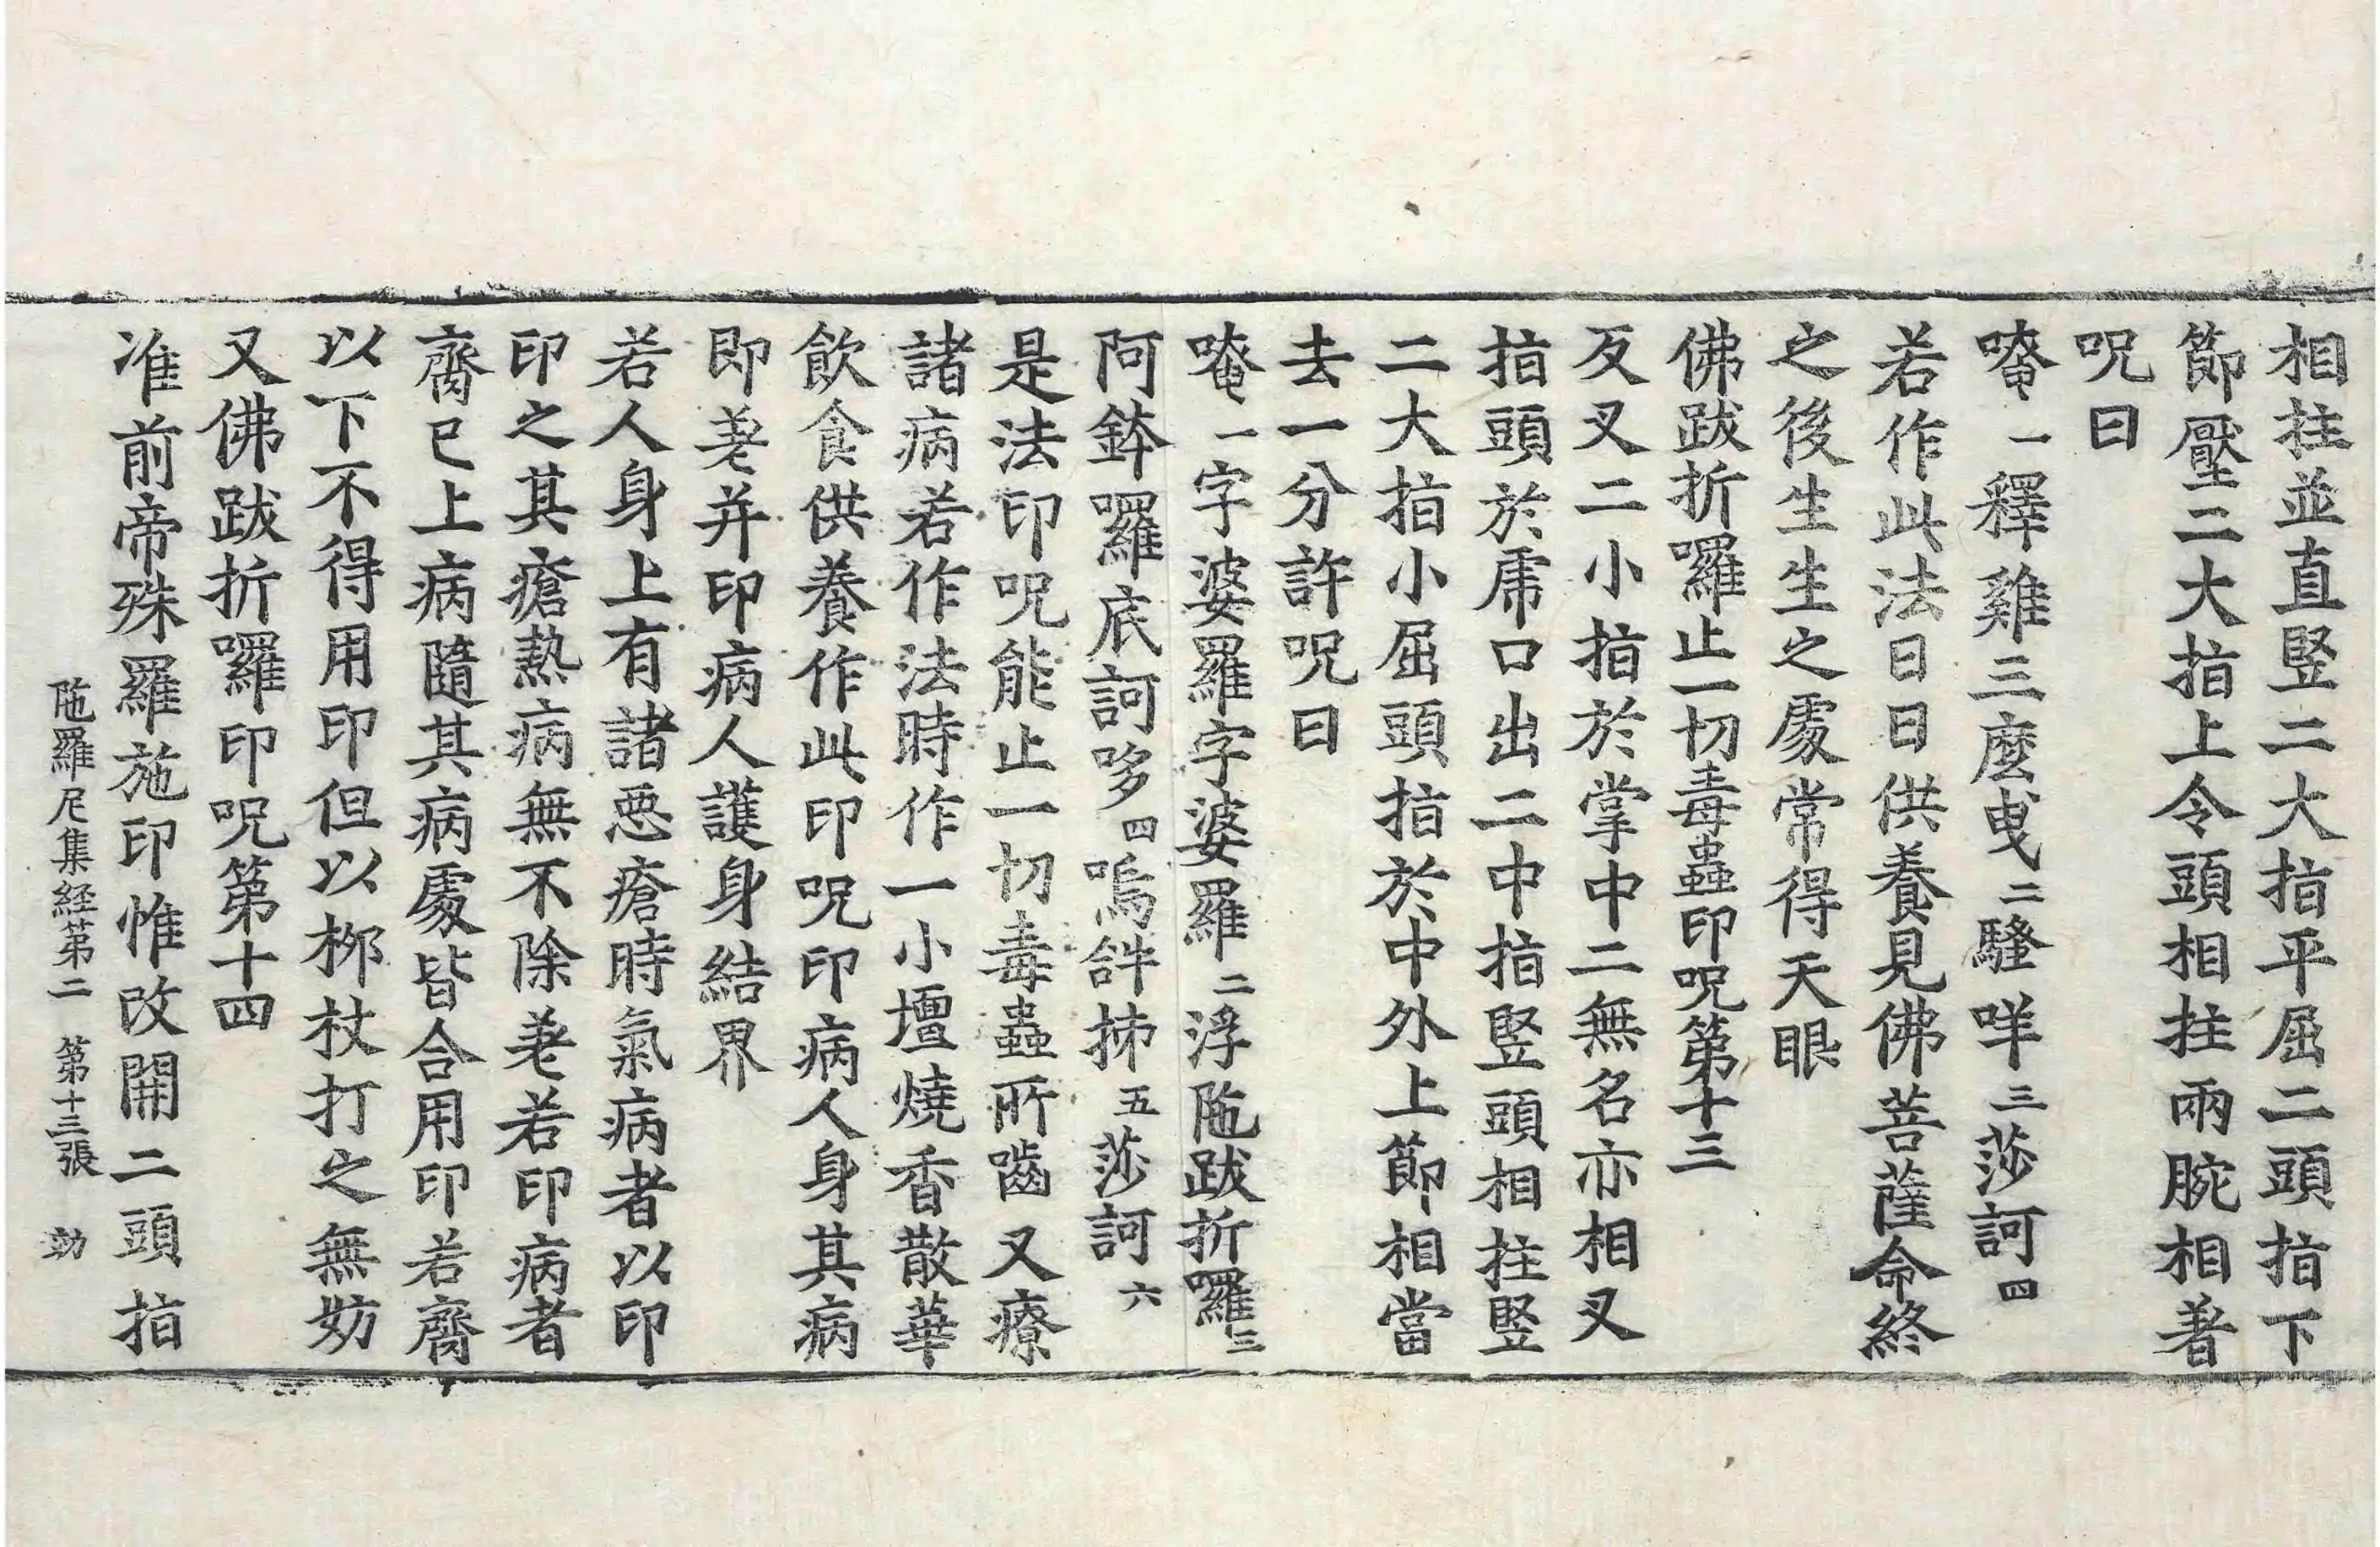 相拄並直竪二大指平屈二頭指下
節壓二大指上令頭相拄兩腕相著
呪曰
唵一釋雞三麼曳二騷咩三莎訶四
若作此法日日供養見佛菩薩命終
之後生生之處常得天眼
佛跋折囉止一切毒蟲印呪第十三
反叉二小指於掌中二無名亦相叉
指頭於虎口出二中指竪頭相拄竪
二大指小屈頭指於中外上節相當
去一分許呪曰
唵一字婆羅字婆羅二浮陁跋折囉三
阿鉢囉底訶哆四嗚𤙖抪五莎訶六
是法印呪能止一切毒蟲所嚙又療
諸病若作法時作一小壇燒香散華
飲食供養作此印呪印病人身其病
即差并印病人護身結界
若人身上有諸惡瘡時氣病者以印
印之其瘡熱病無不除差若印病者
齊已上病隨其病處皆合用印若齊
以下不得用印但以桞杖打之無妨
又佛跋折囉印呪第十四
准前帝殊羅施印惟改開二頭指
陁羅尼集経第二 第十三張 勀